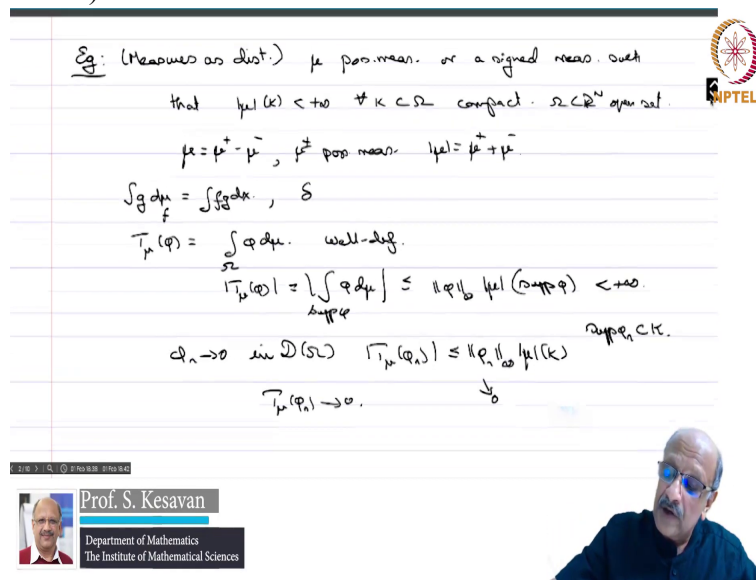 Eg: (Measures as dist.) μ pos. meas. or a signed meas. such
that |μ|(K) < +∞ ∀ K ⊂ Ω compact. Ω ⊂ ℝᴺ open set.
NPTEL
μ = μ⁺ - μ⁻, μ± pos meas. |μ| = μ⁺ + μ⁻.
∫g dμ_f = ∫fg dx., δ
T_μ(φ) = ∫_Ω φ dμ. well-def.
|T_μ(φ)| = |∫_supp φ φ dμ| ≤ ‖φ‖_∞ |μ|(supp φ) < +∞.
supp φ_n ⊂ K.
φ_n → 0 in D(Ω) |T_μ(φ_n)| ≤ ‖φ_n‖_∞ |μ|(K)
↓
0
T_μ(φ_n) → 0.
2/10 01 Feb 16:39 01 Feb 16:42
Prof. S. Kesavan
Department of Mathematics
The Institute of Mathematical Sciences